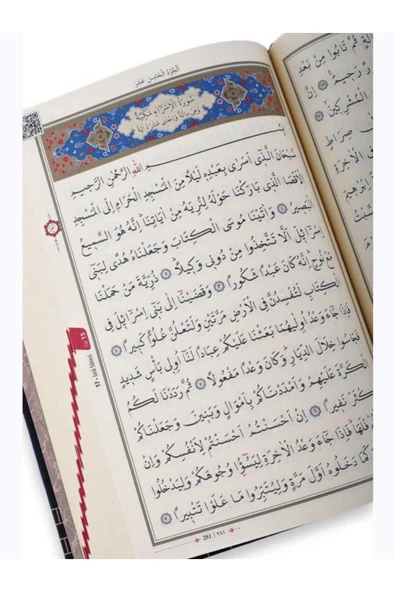 الجُزْءُ الخَامِسُ عَشَرَ
سُورَةُ الْاِسْرَاءِ مَكِّيَّةٌ
وَهِيَ مِائَةٌ وَاِحْدٰى عَشْرَةَ اٰيَةً
بِسْمِ اللّٰهِ الرَّحْمٰنِ الرَّحٖيمِ
سُبْحَانَ الَّذٖٓي اَسْرٰى بِعَبْدِهٖ لَيْلًا مِنَ الْمَسْجِدِ الْحَرَامِ اِلَى الْمَسْجِدِ
الْاَقْصَا الَّذٖي بَارَكْنَا حَوْلَهُ لِنُرِيَهُ مِنْ اٰيَاتِنَا اِنَّهُ هُوَ السَّمٖيعُ
الْبَصٖيرُ ﴿١﴾ وَاٰتَيْنَا مُوسَى الْكِتَابَ وَجَعَلْنَاهُ هُدًى لِبَنٖٓي
اِسْرَٓائٖلَ اَلَّا تَتَّخِذُوا مِنْ دُونٖي وَكٖيلًا ﴿٢﴾ ذُرِّيَّةَ مَنْ حَمَلْنَا
مَعَ نُوحٍ اِنَّهُ كَانَ عَبْدًا شَكُورًا ﴿٣﴾ وَقَضَيْنَٓا اِلٰى بَنٖٓي اِسْرَٓائٖلَ فِي
الْكِتَابِ لَتُفْسِدُنَّ فِي الْاَرْضِ مَرَّتَيْنِ وَلَتَعْلُنَّ عُلُوًّا كَبٖيرًا ﴿٤﴾
فَاِذَا جَٓاءَ وَعْدُ اُو۫لٰيهُمَا بَعَثْنَا عَلَيْكُمْ عِبَادًا لَنَٓا اُو۬لٖي بَأْسٍ شَدٖيدٍ
فَجَاسُوا خِلَالَ الدِّيَارِ وَكَانَ وَعْدًا مَفْعُولًا ﴿٥﴾ ثُمَّ رَدَدْنَا لَكُمُ
الْكَرَّةَ عَلَيْهِمْ وَاَمْدَدْنَاكُمْ بِاَمْوَالٍ وَبَنٖينَ وَجَعَلْنَاكُمْ
اَكْثَرَ نَفٖيرًا ﴿٦﴾ اِنْ اَحْسَنْتُمْ اَحْسَنْتُمْ لِاَنْفُسِكُمْ وَاِنْ
فَلَهَا فَاِذَا جَٓاءَ وَعْدُ الْاٰخِرَةِ لِيَسُٓوؤُ۫ا وُجُوهَكُمْ وَلِيَدْخُلُوا
كَمَا دَخَلُوهُ اَوَّلَ مَرَّةٍ وَلِيُتَبِّرُوا مَا عَلَوْا تَتْبٖيرًا ﴿٧﴾
281 | ٢٨١
17- İsrâ Sûresi
ثُمَّ تَابُوا مِنْ بَعْدِ
رَحٖيمٌ
الْمُشْرِكٖينَ
صِرَاطٍ
فِي الْاٰخِرَةِ